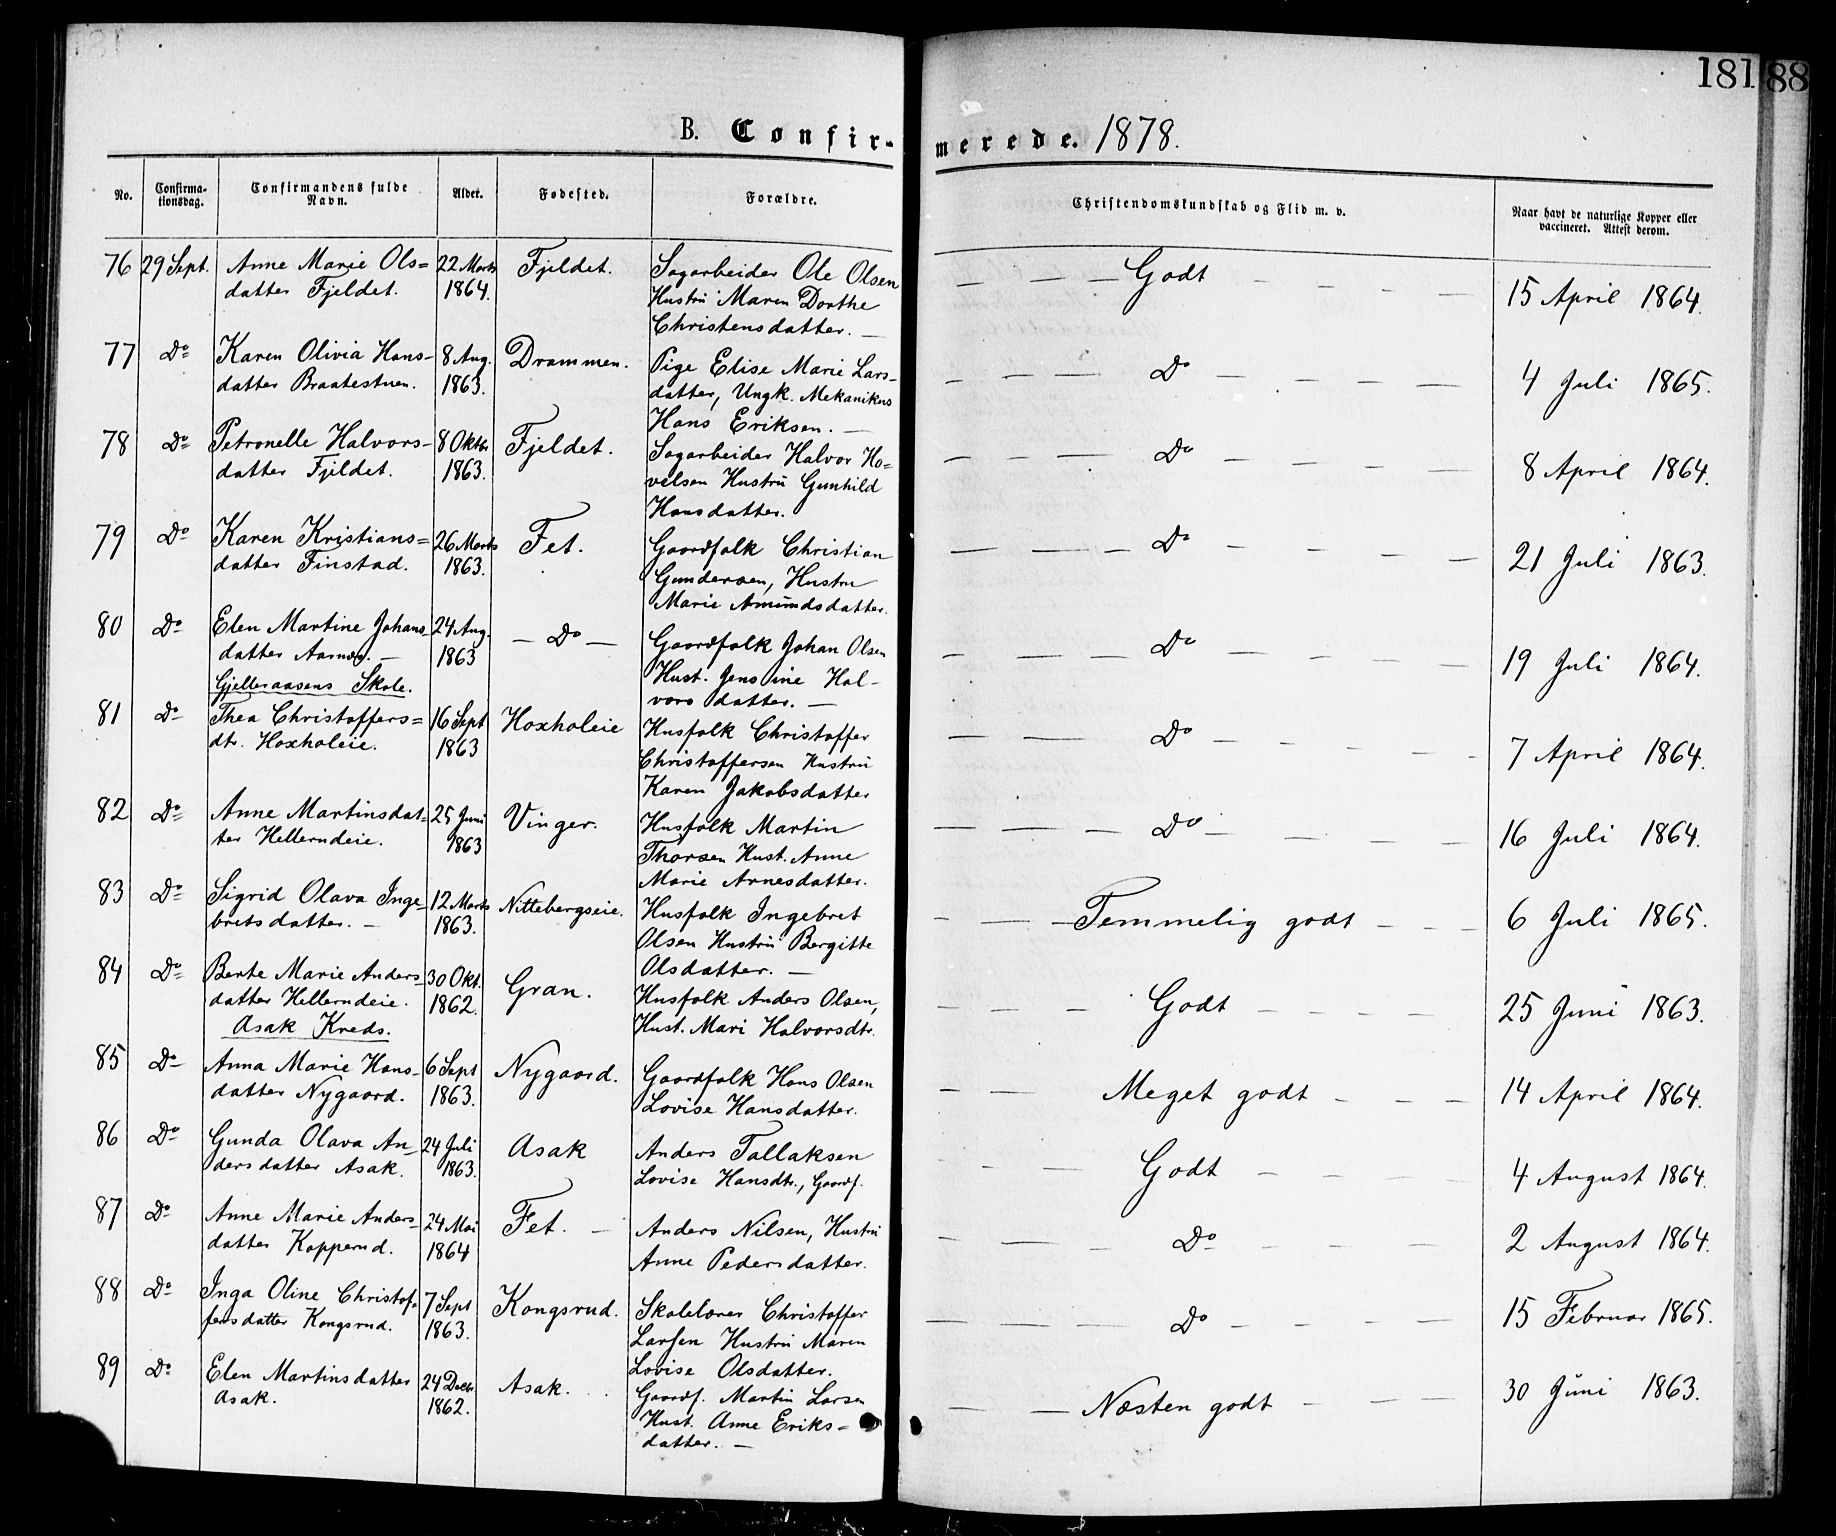 181 88
B. Confir- merede. 1878.
No. Confirma-tionsdag. Confirmandens fulde Navn. Alder. Fødested. Forældre. Christendomskundskab og Flid m. v. Naar havt de naturlige Kopper eller vaccineret. Attest derom.
76 29 Sept. Anne Marie Ols= 22 Marts Fjeldet. Sagarbeider Ole Olsen — — — Godt — — — —
datter Fjeldet. 1864. Hustrü Maren Dorthe 15 April 1864.
Christensdatter. —
77 Do Karen Olivia Hans- 8 Aug. Drammen. Pige Elise Marie Lars- — — — Do — — — —
datter Braatestuen. 1863. datter, Ungk. Mekanikus 4 Juli 1865.
Hans Eriksen. —
78 Do Petronelle Halvors- 8 Oktbr Fjeldet. Sagarbeider Halvor Ho= — — — Do — — — —
datter Fjeldet. 1863. velsen Hustrü Gunhild 8 April 1864.
Hansdatter.
79 Do Karen Kristians= 26 Marts Fet. Gaardfolk Christian — — — Do — — — —
datter Finstad. 1863. Gundersen, Hustru 21 Juli 1863.
Marie Amündsdatter.
80 Do Elen Martine Johans- 24 Aug. — Do — Gaardfolk Johan Olsen — — — Do — — — —
datter Aarnæs. — 1863 Hust. Jensine Hal- 19 Juli 1864.
Gjelleraasens Skole. vorsdatter. —
81 Do Thea Christoffers= 16 Sept Hoxholeie Husfolk Christoffer — — — Do — — — —
dtr. Hoxholeie. 1863 Christoffersen Hustrü 7 April 1864.
Karen Jakobsdatter
82 Do Anne Martinsdat- 25 Juni Vinger. Husfolk Martin — — — Do — — — —
ter Hellerudeie. 1863 Thorsen Hust. Anne 16 Juli 1864.
Marie Arnesdatter.
83 Do Sigrid Olava Inge- 12 Marts Nittebergseie. Husfolk Ingebret — — — Temmelig godt — — —
bretsdatter. — 1863. Olsen Hustrü Bergitte 6 Juli 1865.
Olsdatter. —
84 Do Berte Marie Anders- 30 Okt. Gran. Husfolk Anders Olsen, — — — Godt — — — —
datter Hellerudeie. 1862. Hust. Mari Halvorsdtr. 25 Juni 1863.
Asak Kreds.
85 Do Anna Marie Hans- 6 Sept Nygaard. Gaardfolk Hans Olsen — — Meget godt — — —
datter Nygaard. 1863. Lovise Hansdatter. 14 April 1864.
86 Do Gunda Olava An- 24 Juli Asak Anders Tollaksen — — — Godt — — — —
dersdatter Asak. 1863. Lovise Hansdtr., Gaardf. 4 August 1864.
87 Do Anne Marie Anders- 24 Mai Fet. — Anders Nilsen, Hustrü — — — Do — — — —
datter Kopperud. 1864 Anne Pedersdatter. 2 August 1864.
88 Do Inga Oline Christof- 7 Sept Kongsrud. Skolelærer Christoffer — — — Do — — — —
fersdatter Kongsrud. 1863. Larsen Hustrü Maren 15 Februar 1865.
Lovise Olsdatter.
89 Do Elen Martinsdatter 24 Decbr Asak. Gaardf. Martin Larsen — — Næsten godt — — —
Asak. 1862. Hust. Anne Eriks= 30 Jüni 1863.
datter. —